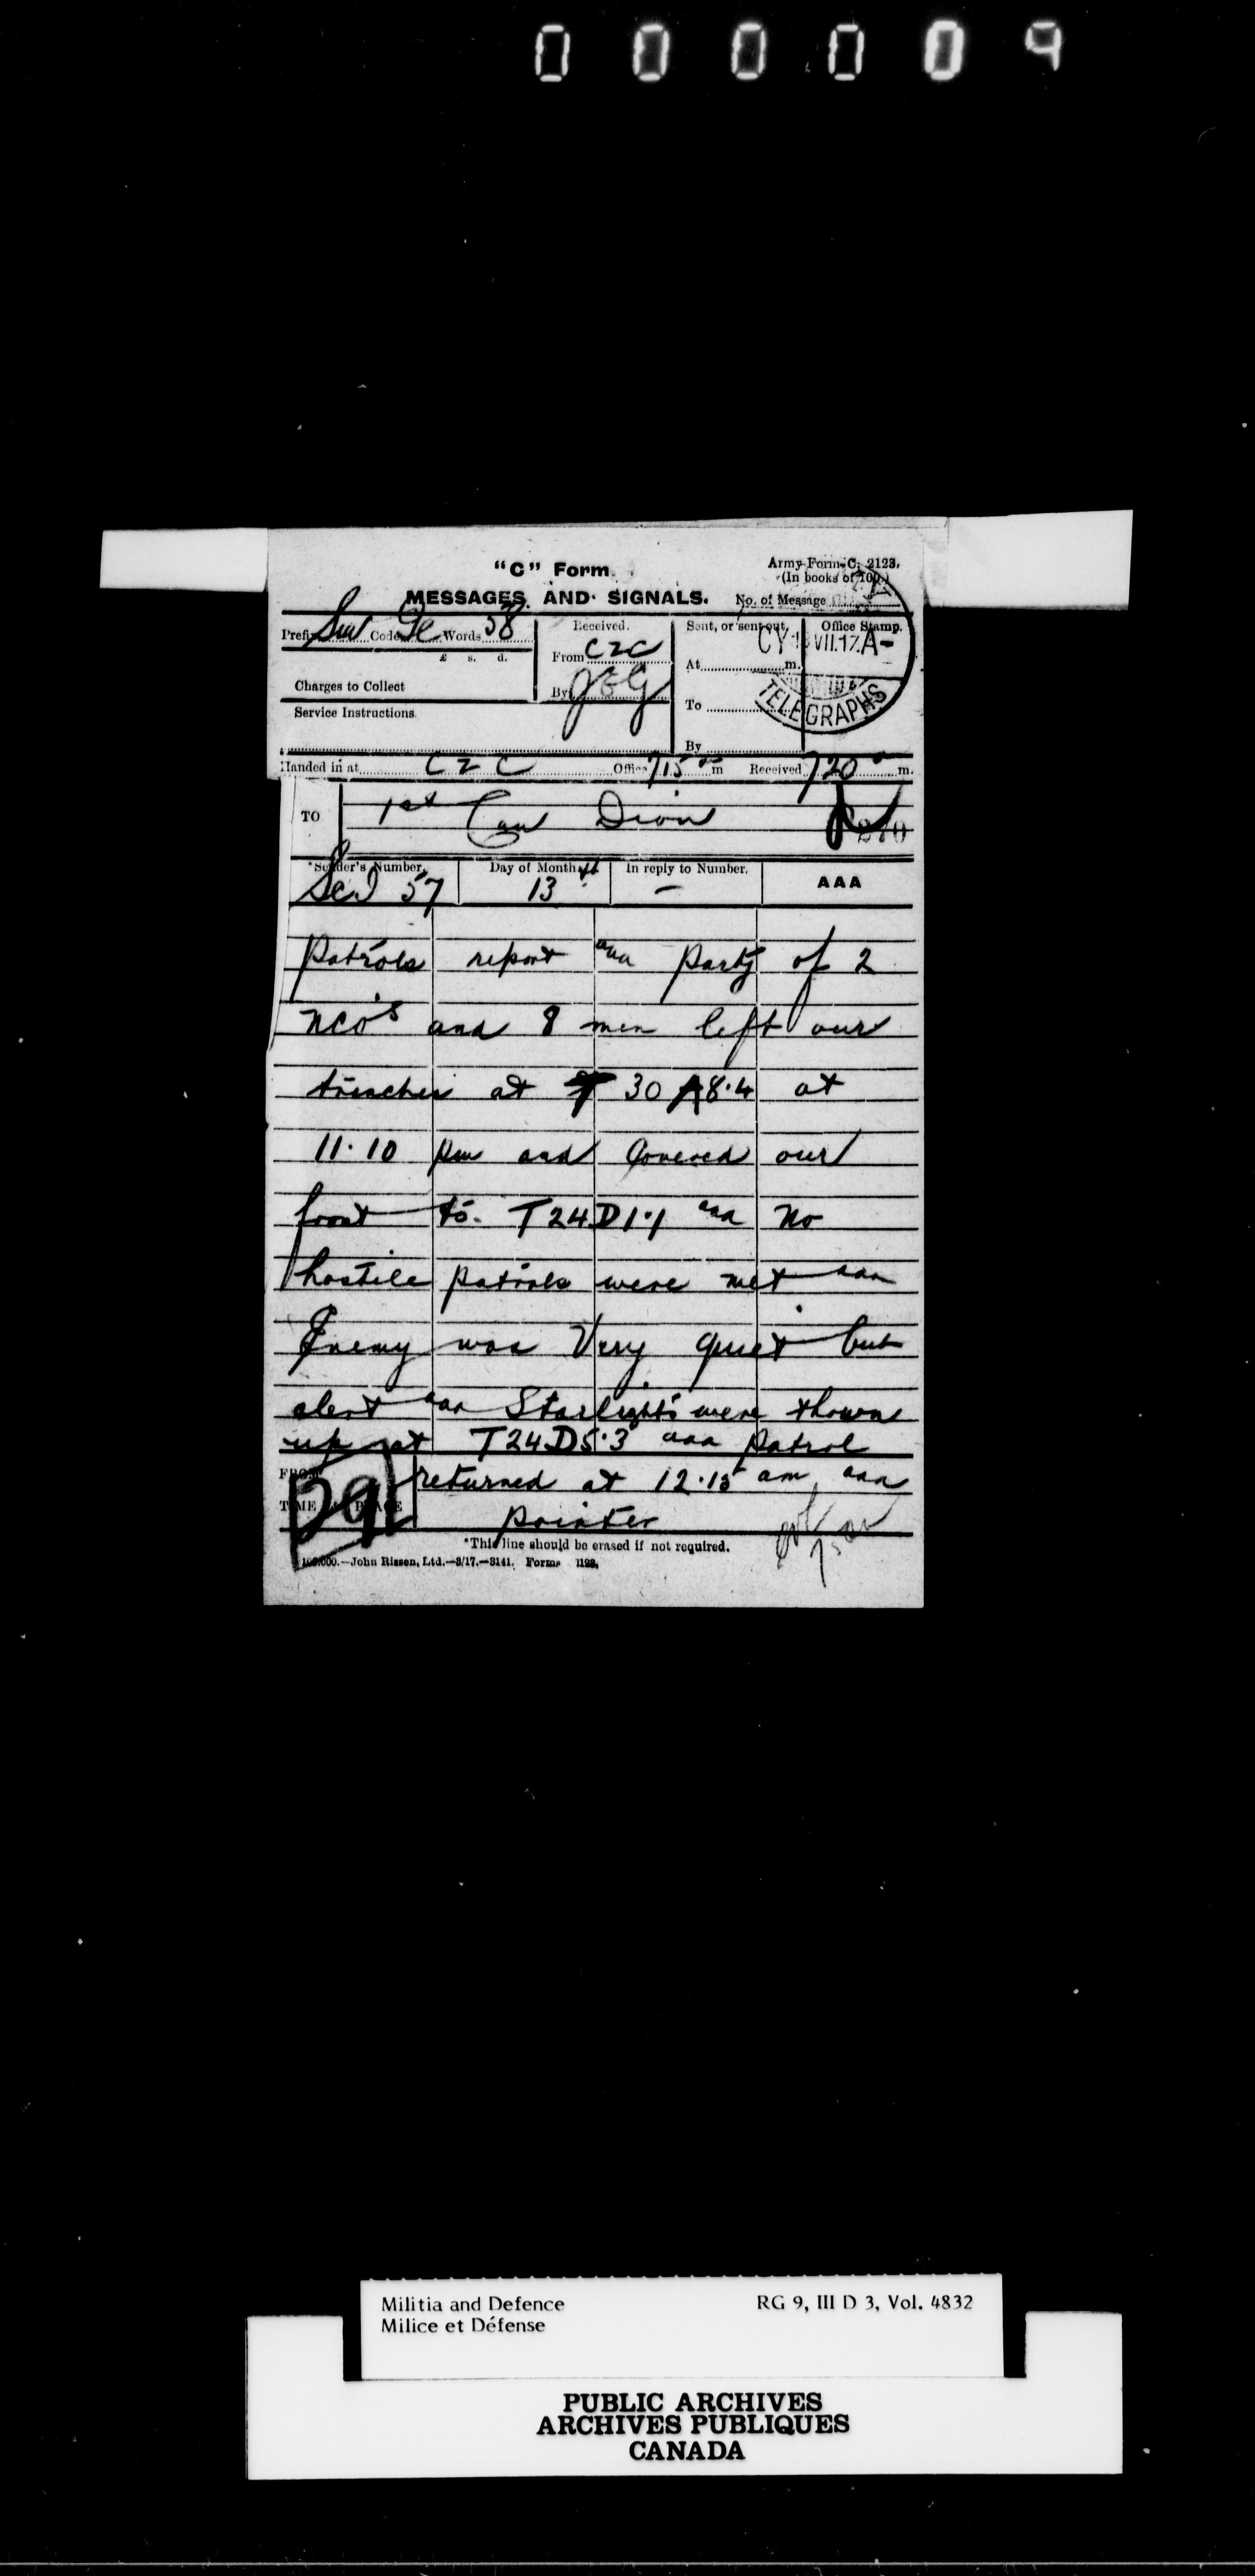 000009
"C" Form.
Army Form C. 2123.
(In books of 100.)
MESSAGES AND SIGNALS.
No. of Message
Prefix Sm Code Ge Words 58
£ s. d.
Charges to Collect
Service Instructions.
Received.
From CZC
By JEG
Sent, or sent out.
At m.
To
By
Office Stamp.
CY VII.17.A-
TELEGRAPHS
Handed in at CZC Office 715 am Received 720 a m.
TO 1st Can Divn
*Sender's Number. 57
Day of Month 13th
In reply to Number. -
AAA
Patrols report aaa party of 2
NCO's and 8 men left our
trenches at T 30 A8.4 at
11.10 pm and covered our
front to T24D1.1 aaa No
hostile patrols were met aaa
Enemy was Very quiet but
alert aaa Starlights were thrown
up at T24D5.3 aaa patrol
FROM
TIME & PLACE
returned at 12.15 am aaa
Pointer
*This line should be erased if not required.
100,000.—John Rissen, Ltd.—3/17.—3141. Forms
Militia and Defence
Milice et Défense
RG 9, III D 3, Vol. 4832
PUBLIC ARCHIVES
ARCHIVES PUBLIQUES
CANADA